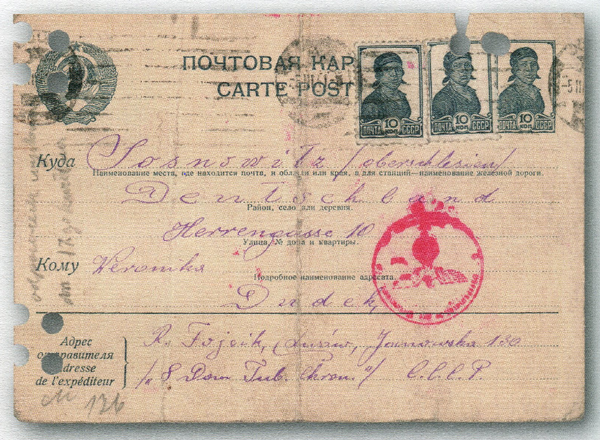 ПОЧТОВАЯ КАР
CARTE POST
10 КОП. 10 КОП. 10 КОП.
ПОЧТА СССР ПОЧТА СССР ПОЧТА СССР
Куда Sosnowitz /oberschlesien/
Наименование места, где находится почта, и области или края, а для станций—наименование железной дороги.
Deutschland
Район, село или деревня.
Herrengasse 10
Улица, № дома и квартиры.
Кому Veronika
Подробное наименование адресата.
Dudek
Адрес отправителя
Adresse de l'expéditeur
R. Fojcik, Janowska 130
"S. Dom Tub. Chron." C.C.C.P.
126